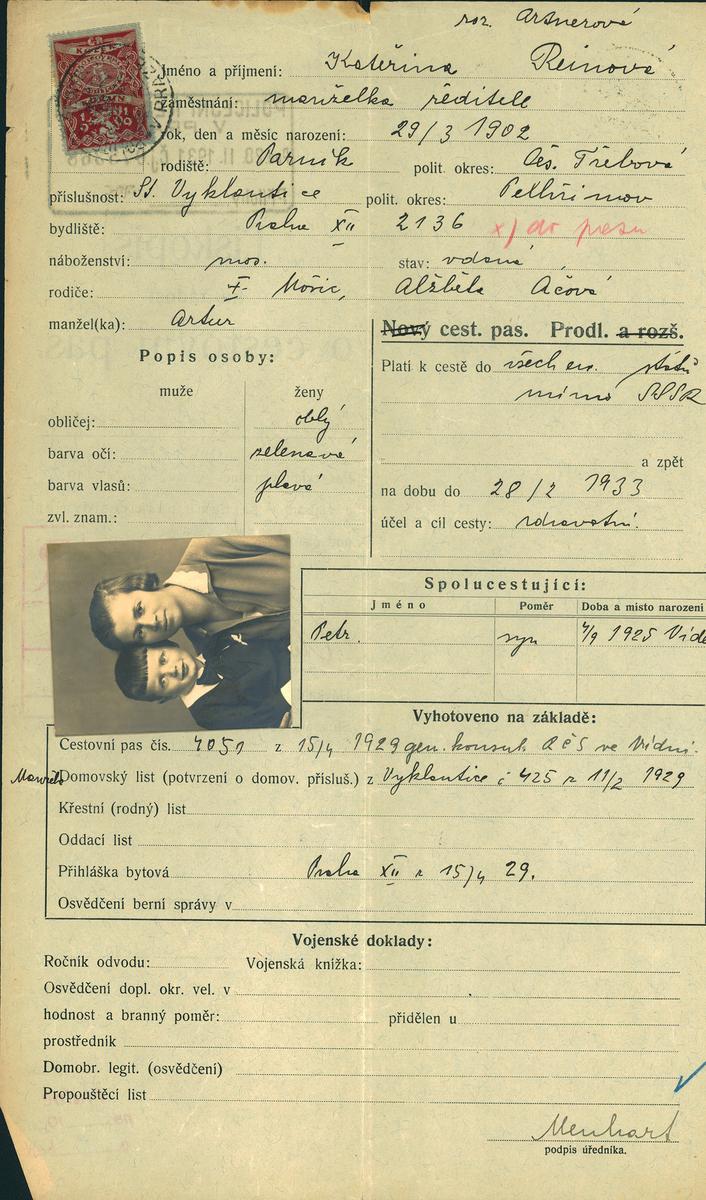 roz. Artnerová
Jméno a příjmení: Kateřina Reinová
zaměstnání: manželka ředitele
rok, den a měsíc narození: 29/3 1902
rodiště: Parník polit. okres: Čes. Třebová
příslušnost: St. Vyklantice polit. okres: Pelhřimov
bydliště: Praha XII 2136 x) do pasu
náboženství: mos. stav: vdaná
rodiče: Mořic, Alžběta
manžel(ka): Artur
Nový cest. pas. Prodl. a rozš.
Popis osoby:
Platí k cestě do všech ev. států
mimo SSSR
muže ženy
obličej: oblý
barva očí: zelenavé
a zpět
barva vlasů: plavá
na dobu do 28/2 1933
zvl. znam.:
účel a cíl cesty: zdravotní.
Spolucestující:
Jméno Poměr Doba a místo narození
Petr. syn 4/9 1925 Víde
Vyhotoveno na základě:
Cestovní pas čís. 4051 z 15/4 1929 gen. konsul. RČS ve Vídni.
Domovský list (potvrzení o domov. přísluš.) z Vyklantice č 425 z 11/2 1929
Křestní (rodný) list
Oddací list
Přihláška bytová Praha XII z 15/4 29.
Osvědčení berní správy v
Vojenské doklady:
Ročník odvodu: Vojenská knížka:
Osvědčení dopl. okr. vel. v
hodnost a branný poměr: přidělen u
prostředník
Domobr. legit. (osvědčení)
Propouštěcí list
Menhart
podpis úředníka.